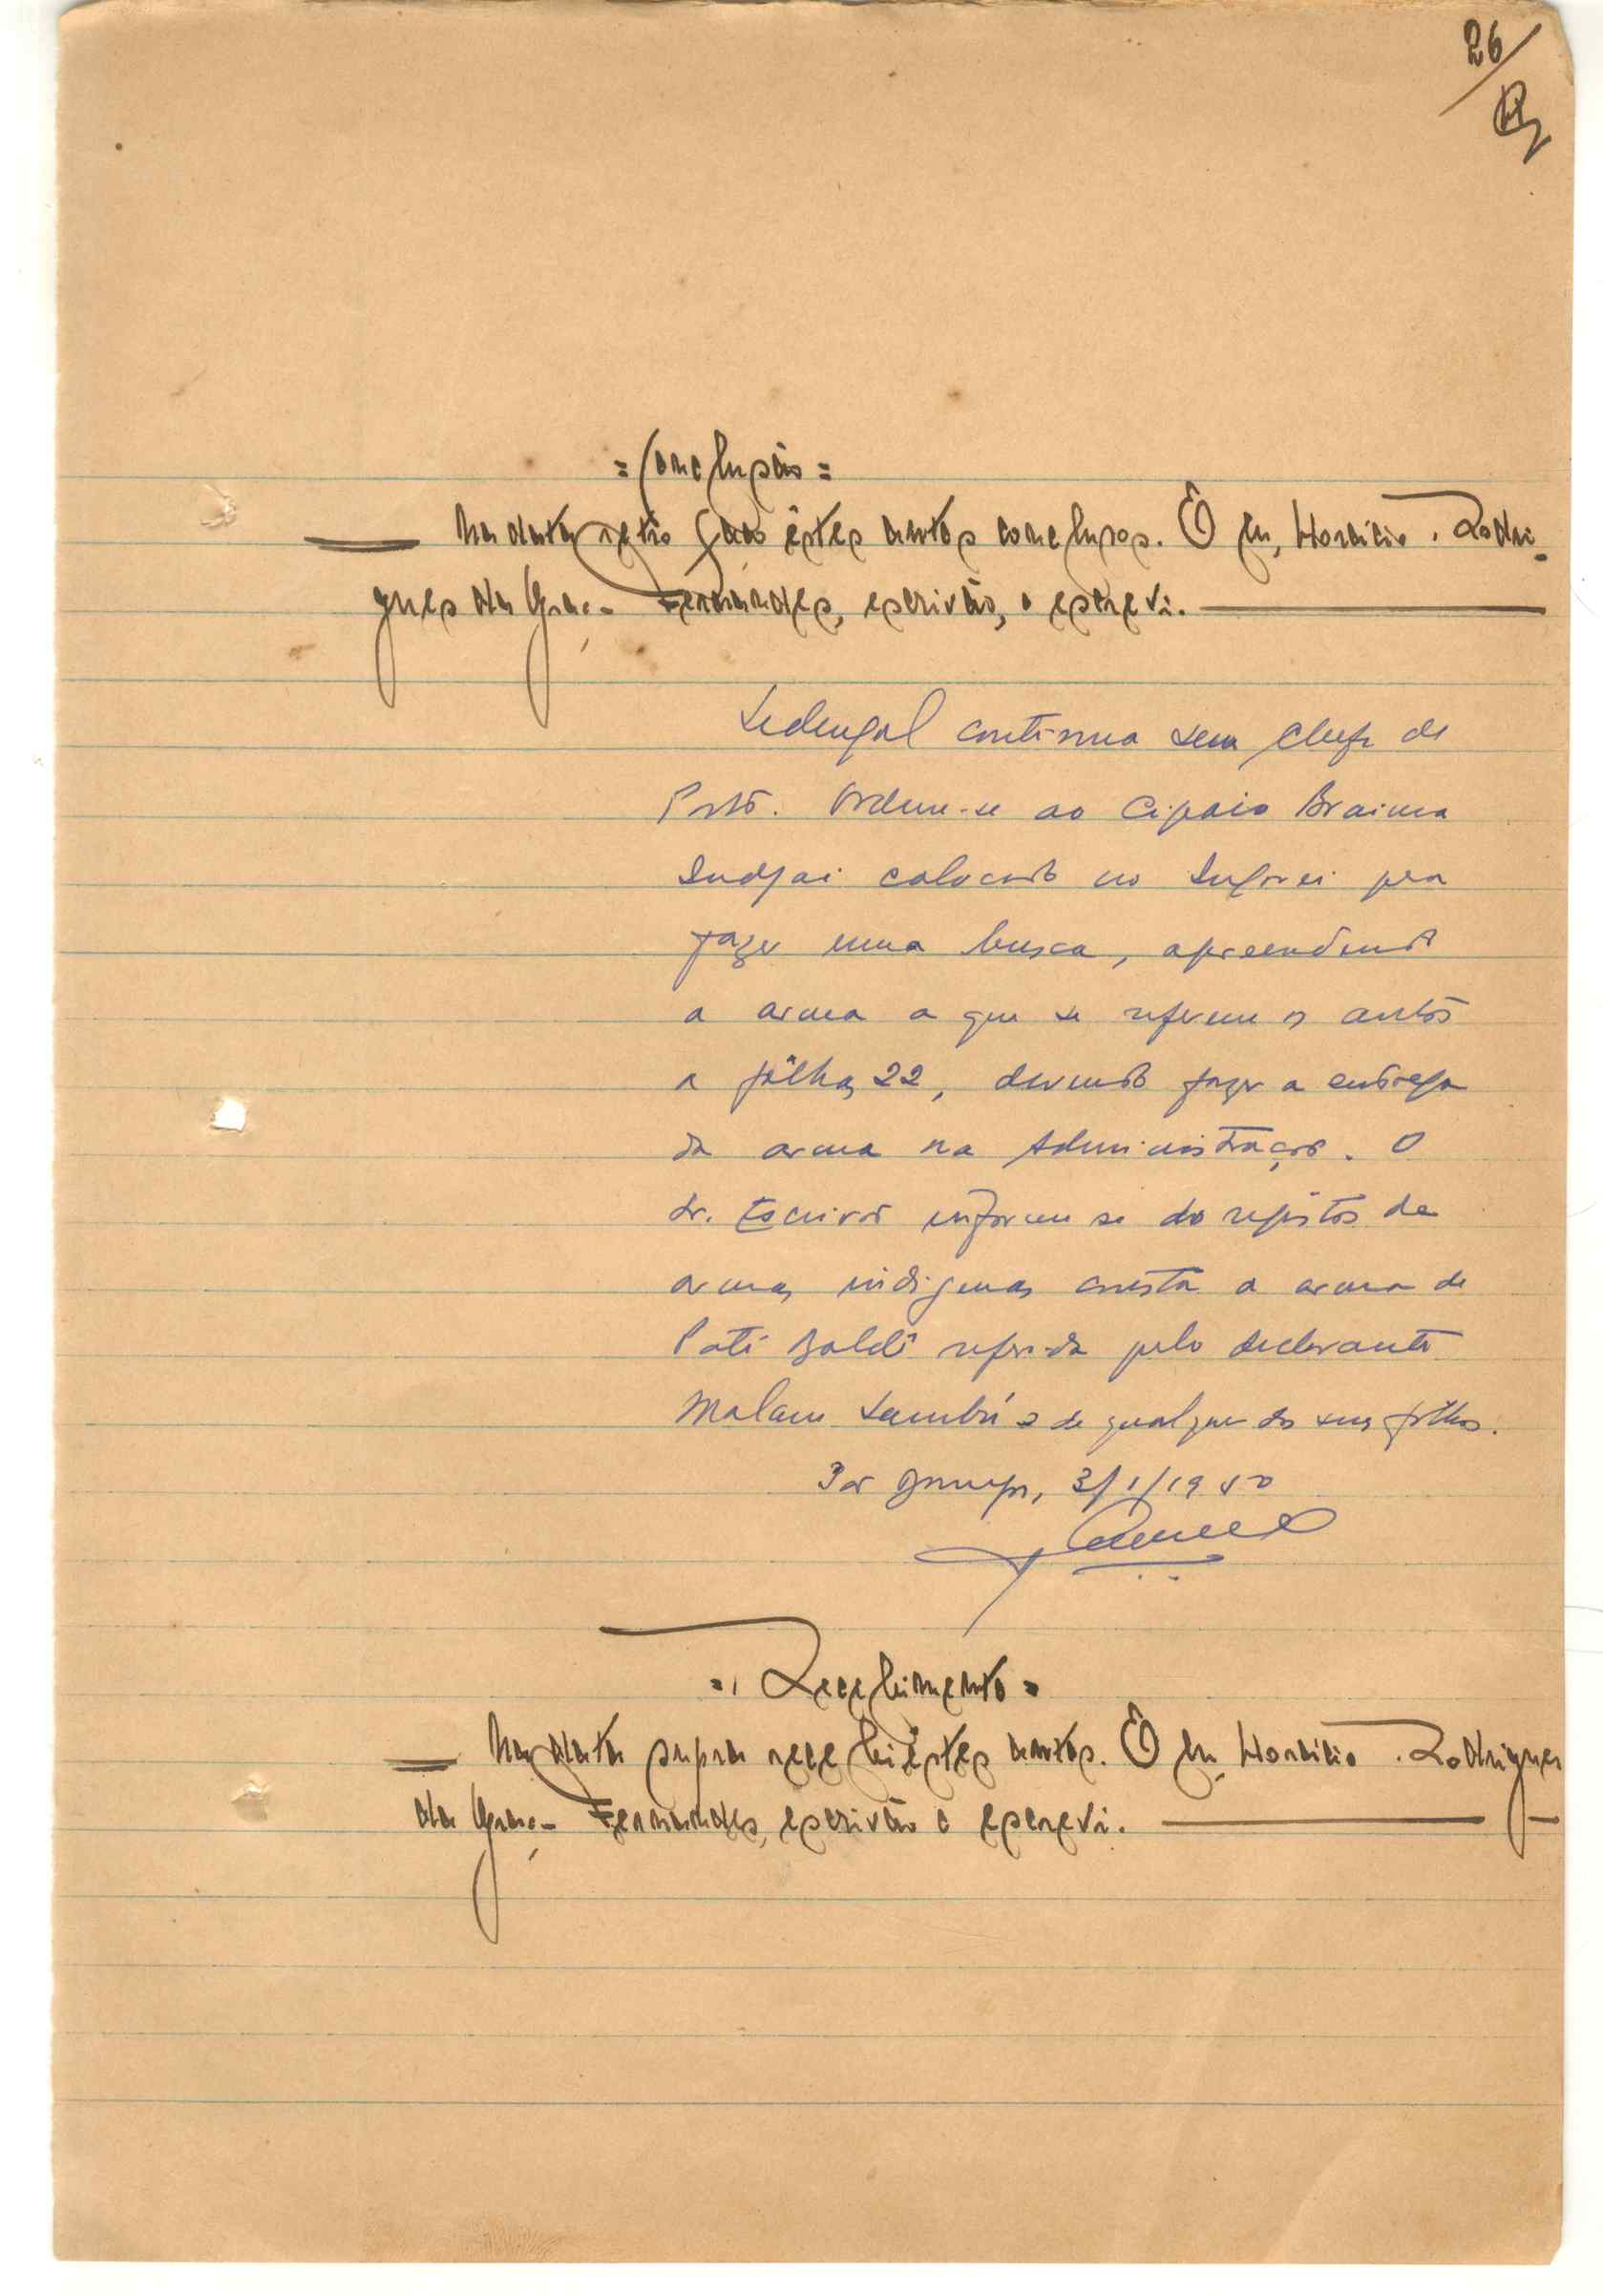 26
= Conclusão =
Na data retro faço êstes autos conclusos. E eu, Horácio Rodri-
gues da Graça Fernandes, escrivão, o escrevi.
continua sem Chefe de
Posto. Ordene-se ao Cipaio Braima
Indjai colocado no para
fazer uma busca, apreendendo
a arma a que se referem os autos
a fôlhas 22, devendo fazer a entrega
da arma na Administração. O
Sr. Escrivão informe se do registos de
armas indígenas consta a arma de
Pati Baldé referida pelo declarante
Malam Sambú e de qualquer dos seus filhos.
3/1/1950
= Recebimento =
Na data supra recebi êstes autos. E eu, Horácio Rodrigues
da Graça Fernandes, escrivão o escrevi.